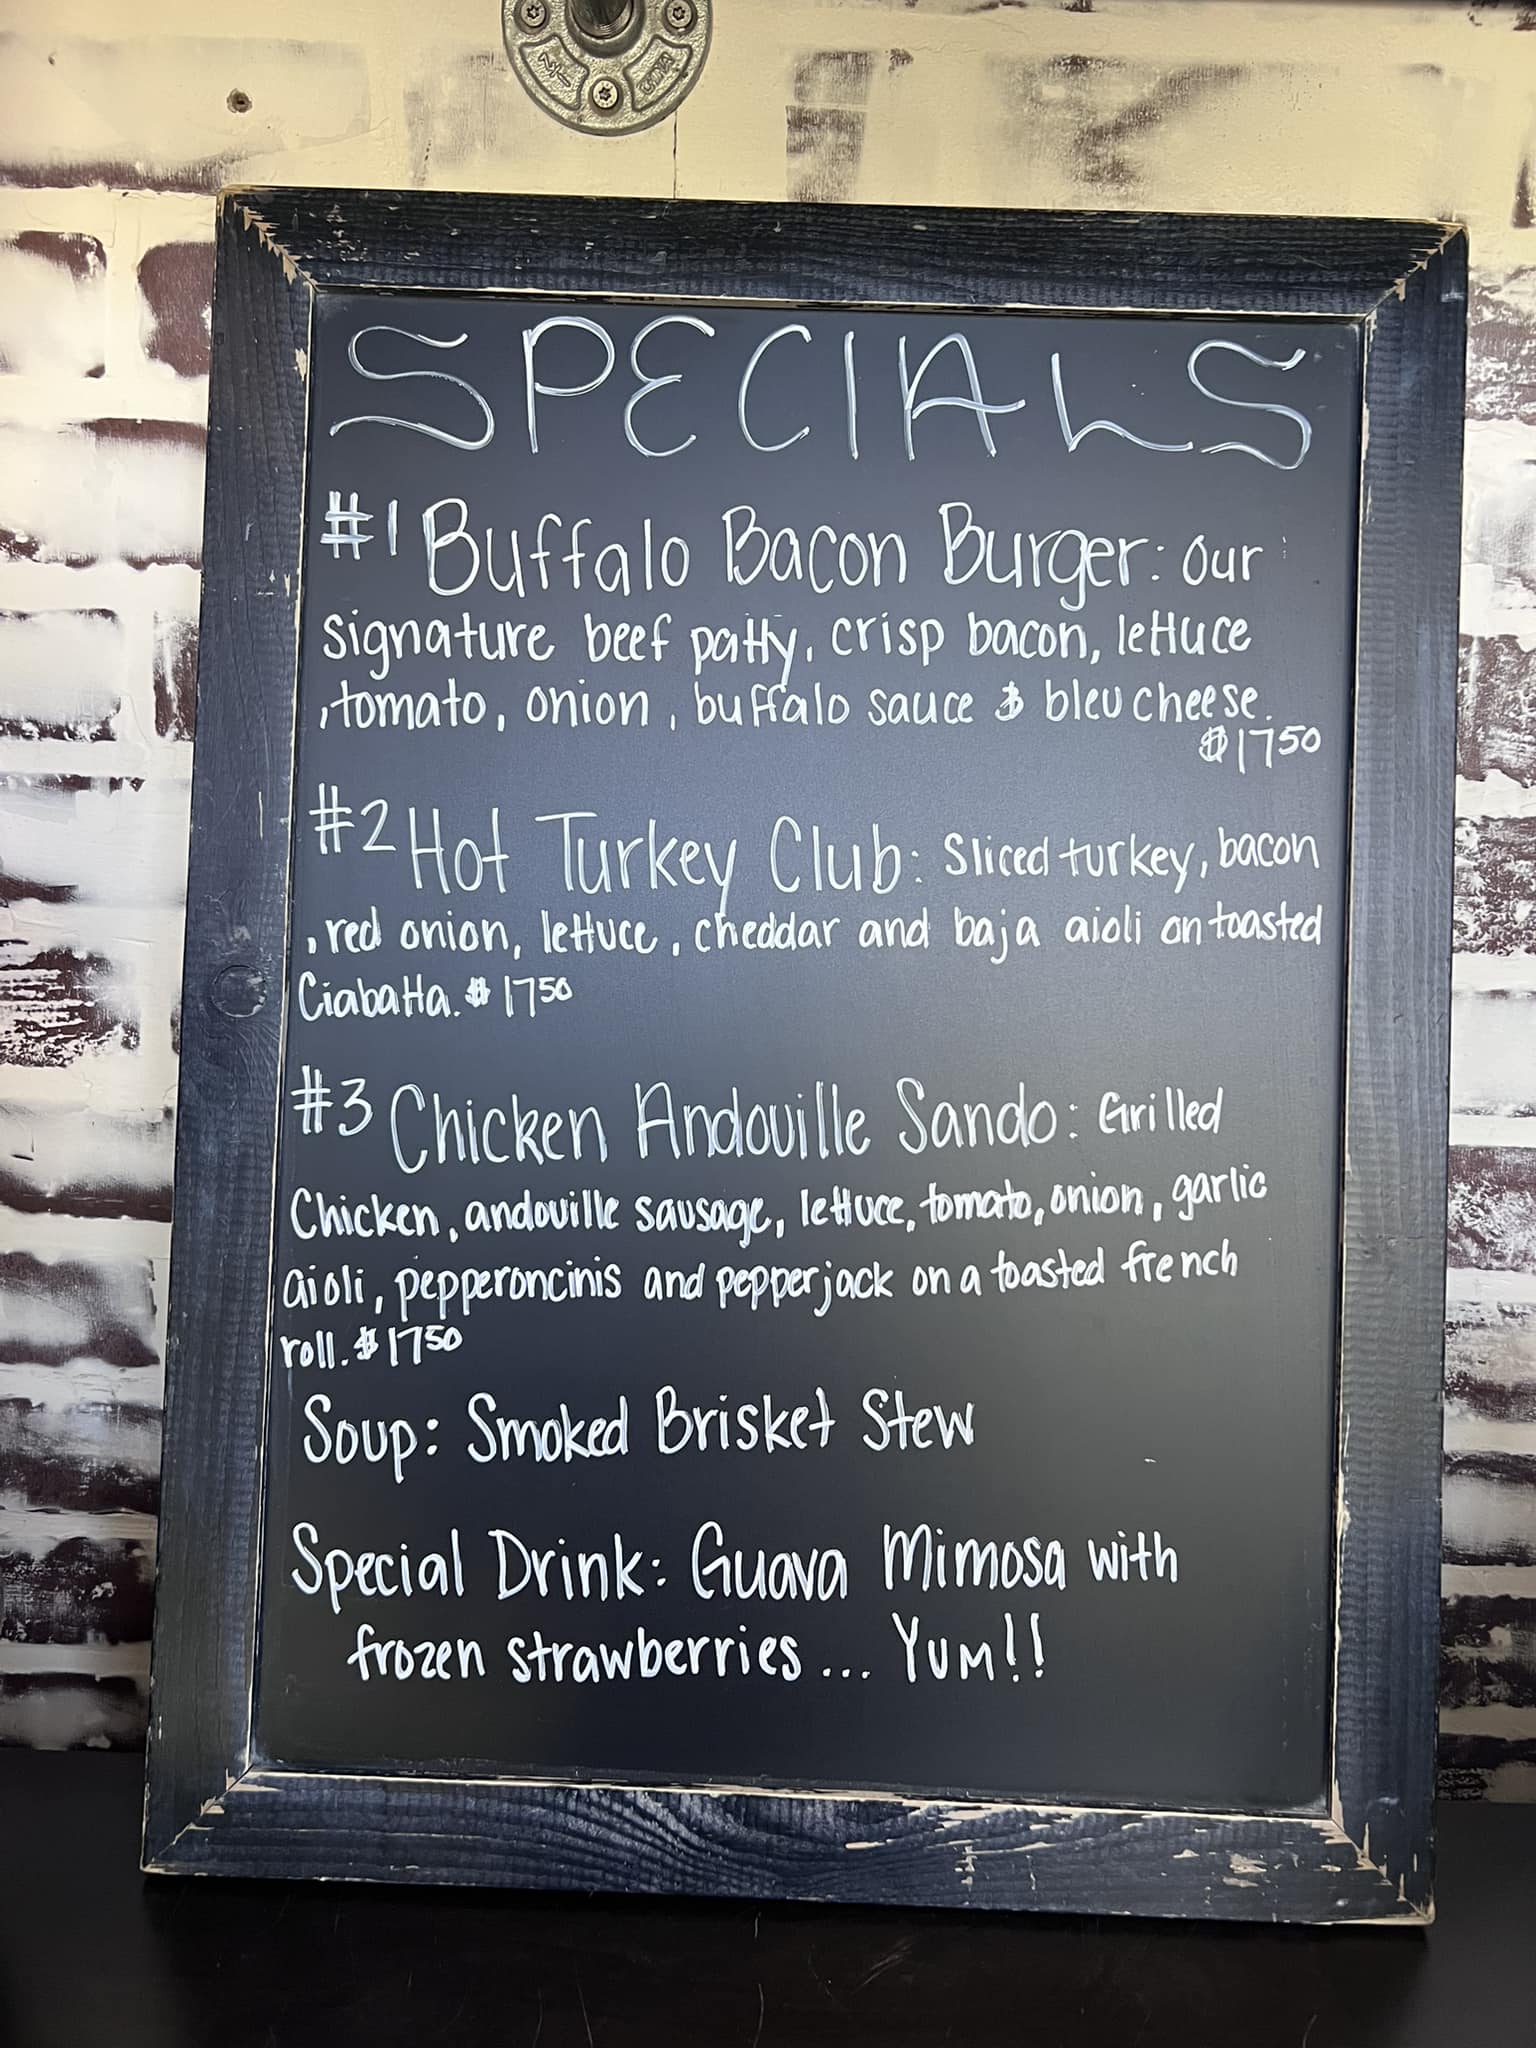 SPECIALS
#1 Buffalo Bacon Burger: our
signature beef patty, crisp bacon, lettuce
, tomato, onion, buffalo sauce & bleu cheese.
$1750
#2 Hot Turkey Club: Sliced turkey, bacon
, red onion, lettuce, cheddar and baja aioli on toasted
Ciabatta. $1750
#3 Chicken Andouille Sando: Grilled
Chicken, andouille sausage, lettuce, tomato, onion, garlic
aioli, pepperoncinis and pepperjack on a toasted french
roll. $1750
Soup: Smoked Brisket Stew
Special Drink: Guava Mimosa with
frozen strawberries... Yum!!